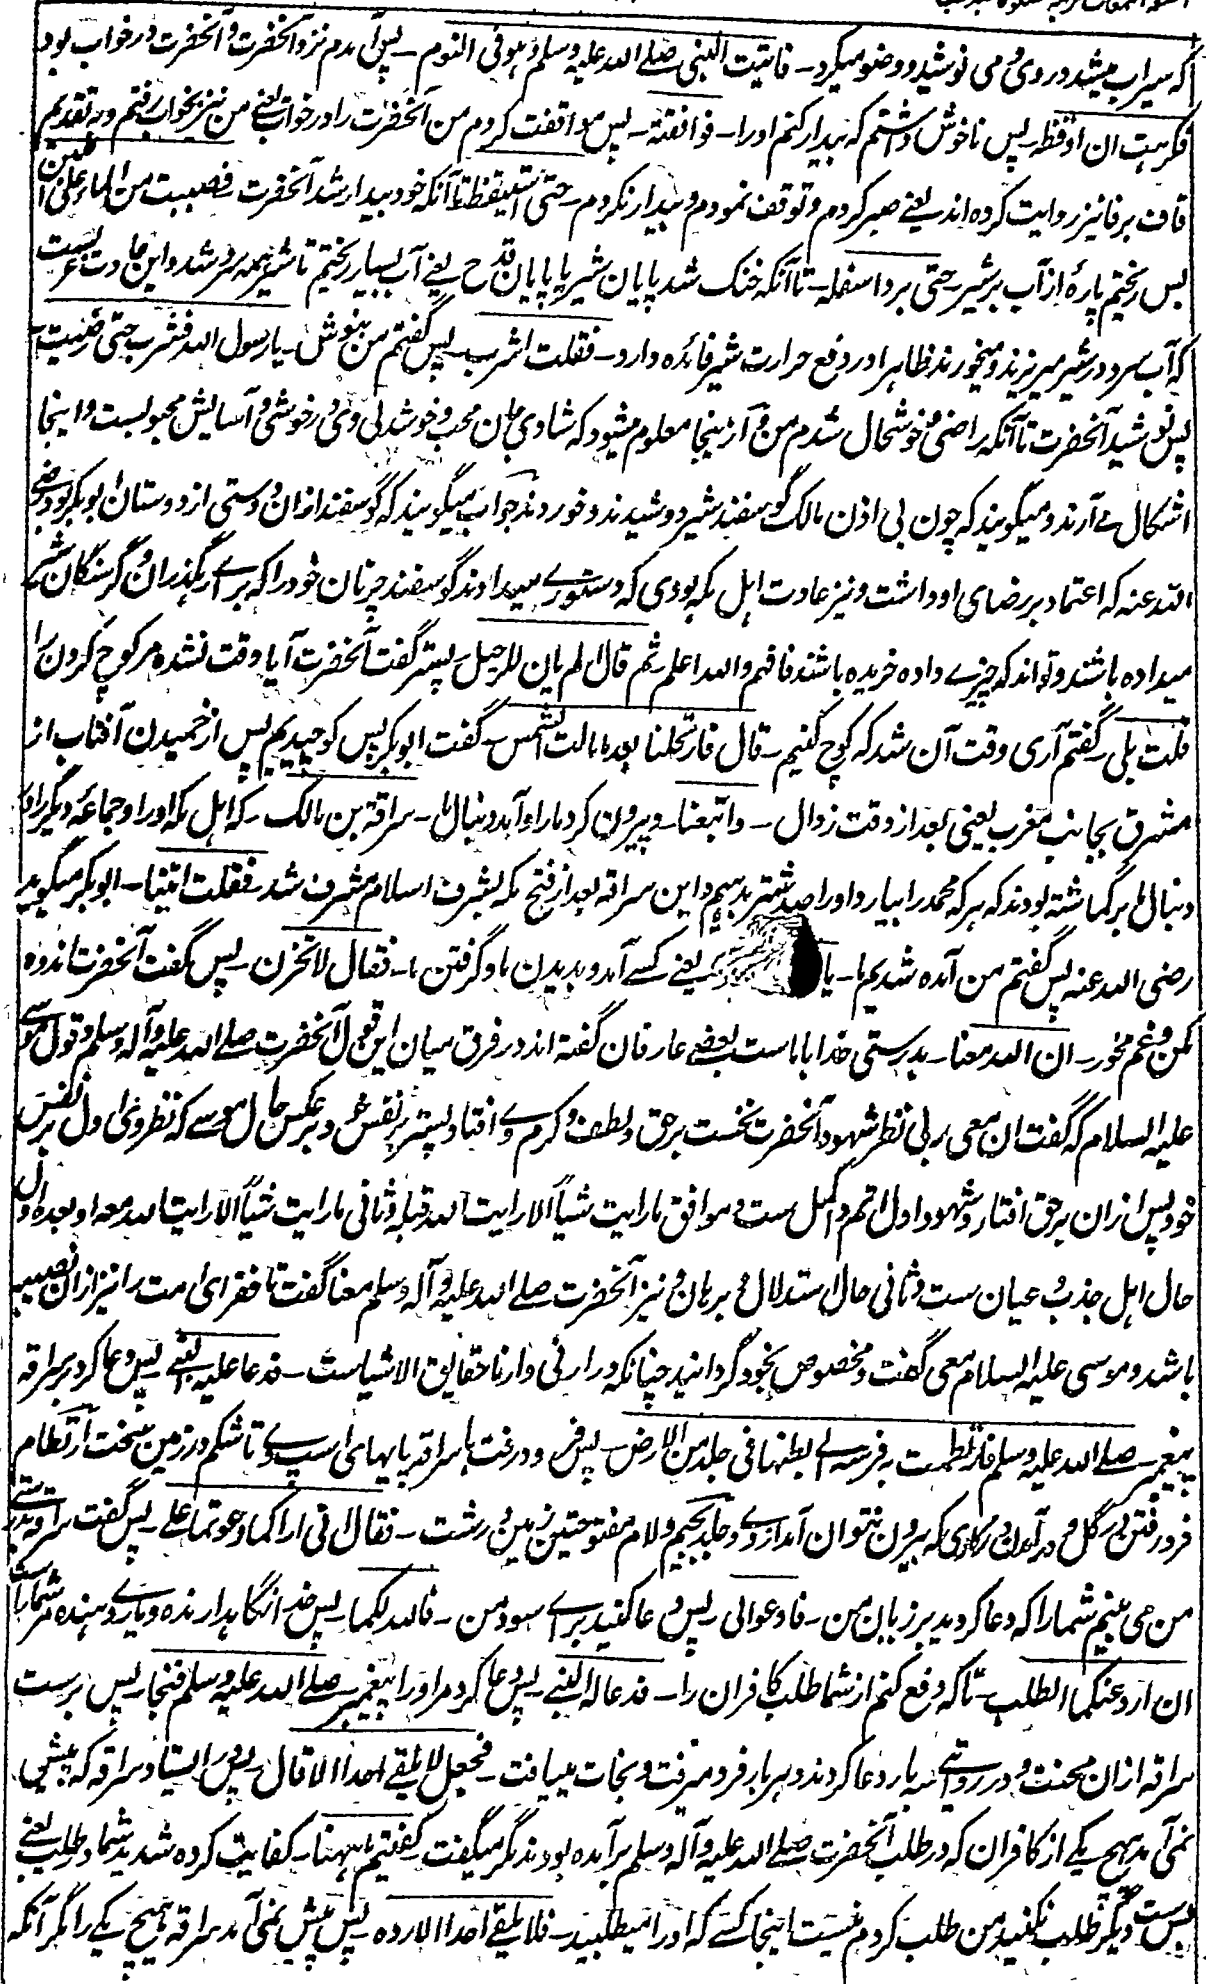 که سیراب میشد در وی و می نوشید و وضو میکرد - فاتیت النبی صلے اللہ علیہ وسلم و هو فی النوم - پس آمدم نزد آنحضرت و آنحضرت در خواب بود
فکرهت ان اوقظه - پس ناخوش داشتم که بیدار کنم او را - فوافقته - پس موافقت کردم من آنحضرت را در خواب یعنے من نیز بخواب رفتم و به تقدیم
قاف بر فا نیز روایت کرده اند یعنے صبر کردم و توقف نمودم و بیدار نکردم - حتی استیقظ تا آنکه خود بیدار شد آنحضرت فصببت من الماء علی اللبن
پس ریختم پارهٔ از آب بر شیر - حتی برد اسفله - تا آنکه خنک شد پایان شیر یا پایان قدح یعنے آب بسیار ریختم تا شیر همه سرد شد و این عادت عرب ست
که آب سرد در شیر میریزند و میخورند ظاهرا در دفع حرارت شیر فائده دارد - فقلت اشرب - پس گفتم من بنوش - یا رسول اللہ فشرب حتی رضیت
پس نوشید آنحضرت تا آنکه راضی و خوشحال شدم من و از ینجا معلوم میشود که شادی جان محب و خوشدلی وی در خوشی و آسایش محبوبست و اینجا
اشکال مے آرند و میگویند که چون بی اذن مالک گوسفند شیر دوشیدند و خوردند جواب میگویند که گوسفند ازان دوستی از دوستان ابوبکر بود رضے
اللہ عنه که اعتماد بر رضای او داشت و نیز عادت اهل مکه بودی که دستورے میدادند گوسفند چرانان خود را که براے رهگذران و گرسنگان شیر
میداده باشند و تواند که چیزے داده خریده باشند فافهم واللہ اعلم - ثم قال الم یان للرحیل - پستر گفت آنحضرت آیا وقت نشده مر کوچ کردن را
قلت بلی - گفتم آری وقت آن شد که کوچ کنیم - قال فارتحلنا بعد ما مالت الشمس - گفت ابوبکر پس کوچیدیم پس از خمیدن آفتاب از
مشرق بجانب مغرب یعنی بعد از وقت زوال - واتبعنا - و پیروی کرد ما را و آمد دنبال ما - سراقة بن مالک - که اهل مکه او را و جماعهٔ دیگر را
دنبال ما بر گماشته بودند که هر که محمد را بیارد او را صد شتر بدهیم و این سراقه بعد از فتح مکه بشرف اسلام مشرف شد - فقلت اتینا - ابوبکر میگوید
رضی اللہ عنه پس گفتم من آمده شدیم ما - یا یعنے کسے آمد و بدیدن ما و گرفتن ما - فقال لا تحزن - پس گفت آنحضرت اندوه
مکن و غم مخور - ان اللہ معنا - بدرستی خدا با ماست بعضے عارفان گفته اند در فرق میان این قول آنحضرت صلے اللہ علیہ وآله وسلم و قول موسے
علیه السلام که گفت ان معی ربی نظر شهود آنحضرت نخست بر حق و لطف و کرم وے افتاد پستر بر نفس خود و بر عکس حال موسے که نظر وی اول بر نفس
خود پس ازان بر حق افتاد و شهود اول اتم و اکمل ست و موافق ما رایت شیأ الا رایت اللہ قبله و ثانی ما رایت شیأ الا رایت اللہ معه او بعده و اول
حال اهل جذب و عیان ست و ثانی حال استدلال و برهان و نیز آنحضرت صلے اللہ علیه وآله وسلم معنا گفت تا فقرای امت را نیز ازان نصیبه
باشد و موسی علیه السلام معی گفت و مخصوص بخود گردانید چنانکه در ارنی و ارنا حقایق الاشیاست - فدعا علیه النبے - پس دعا کرد بر سراقه
پیغمبر - صلے اللہ علیه وسلم فارتطمت به فرسه الے بطنها فی جلد من الارض - پس فرو رفت با سراقه پایهای اسپ وے تا شکم در زمین سخت ارتطام
فرو رفتن در گل و در آمدن در کاری که بیرون نتوان آمد ازوے و جلد بجیم و لام مفتوحتین زمین درشت - فقال انی اراکما دعوتما علے - پس گفت سراقه بدرستی
من می بینم شما را که دعا کردید بر زیان من - فادعوا لی - پس دعا کنید براے سود من - فاللہ لکما - پس خدا نگاهدارنده و یارے دهنده مر شما راست
ان ارد عنکما الطلب - تا که دفع کنم از شما طلب کافران را - فدعا له النبے - پس دعا کرد مر او را پیغمبر - صلے اللہ علیه وسلم فنجا - پس برست
سراقه ازان محنت و در روایتے سه بار دعا کردند و هر بار فرو میرفت و نجات مییافت - فجعل لا یلقے احدا الا قال - پس در ایستاد سراقه که پیش
نمی آمد هیچ یکے از کافران که در طلب آنحضرت صلے اللہ علیه وآله وسلم بر آمده بودند مگر میگفت - کفیتم ما ههنا - کفایت کرده شدید شما در طلب یعنے
بس ست دیگر طلب نکنید من طلب کردم نیست اینجا کسے که او را میطلبید - فلا یلقے احدا الا رده - پس پیش نمی آمد سراقه هیچ یکے را مگر آنکه